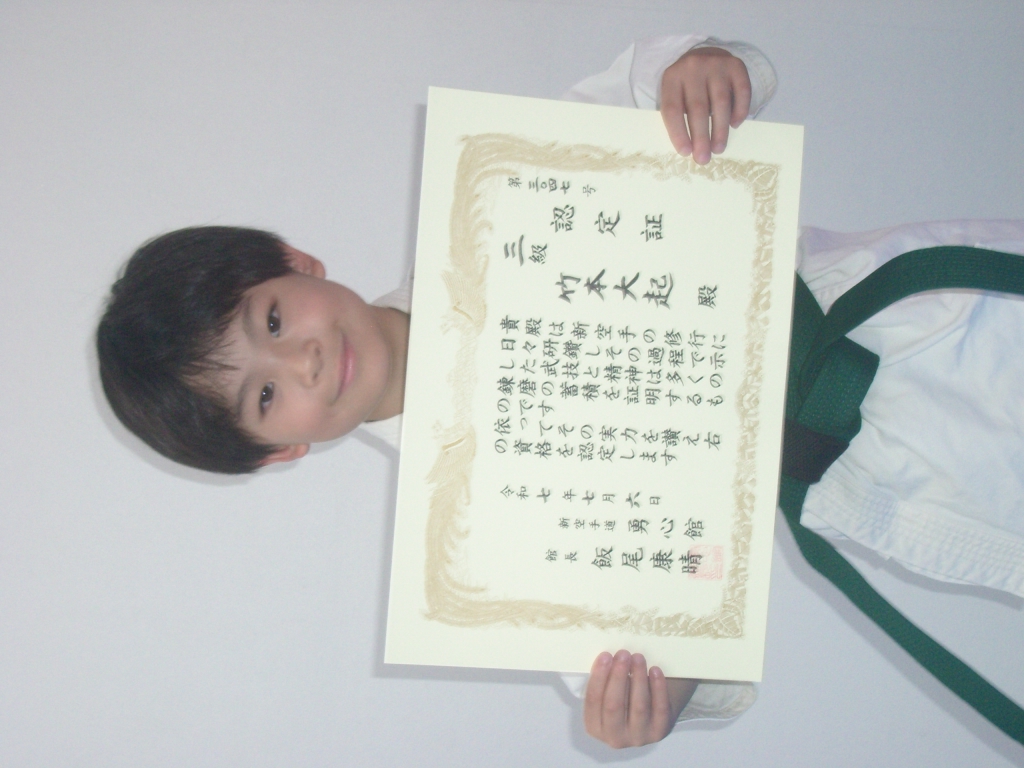 第三〇四七号
認定証
三級
竹本大起殿
貴殿は新空手の修行に
日々研鑽しその過程で示
した武技と精神は多くの
錬磨の蓄積を証明するも
のです
依ってその実力を讃え右
の資格を認定します
令和七年七月六日
新空手道勇心館
館長飯尾康晴